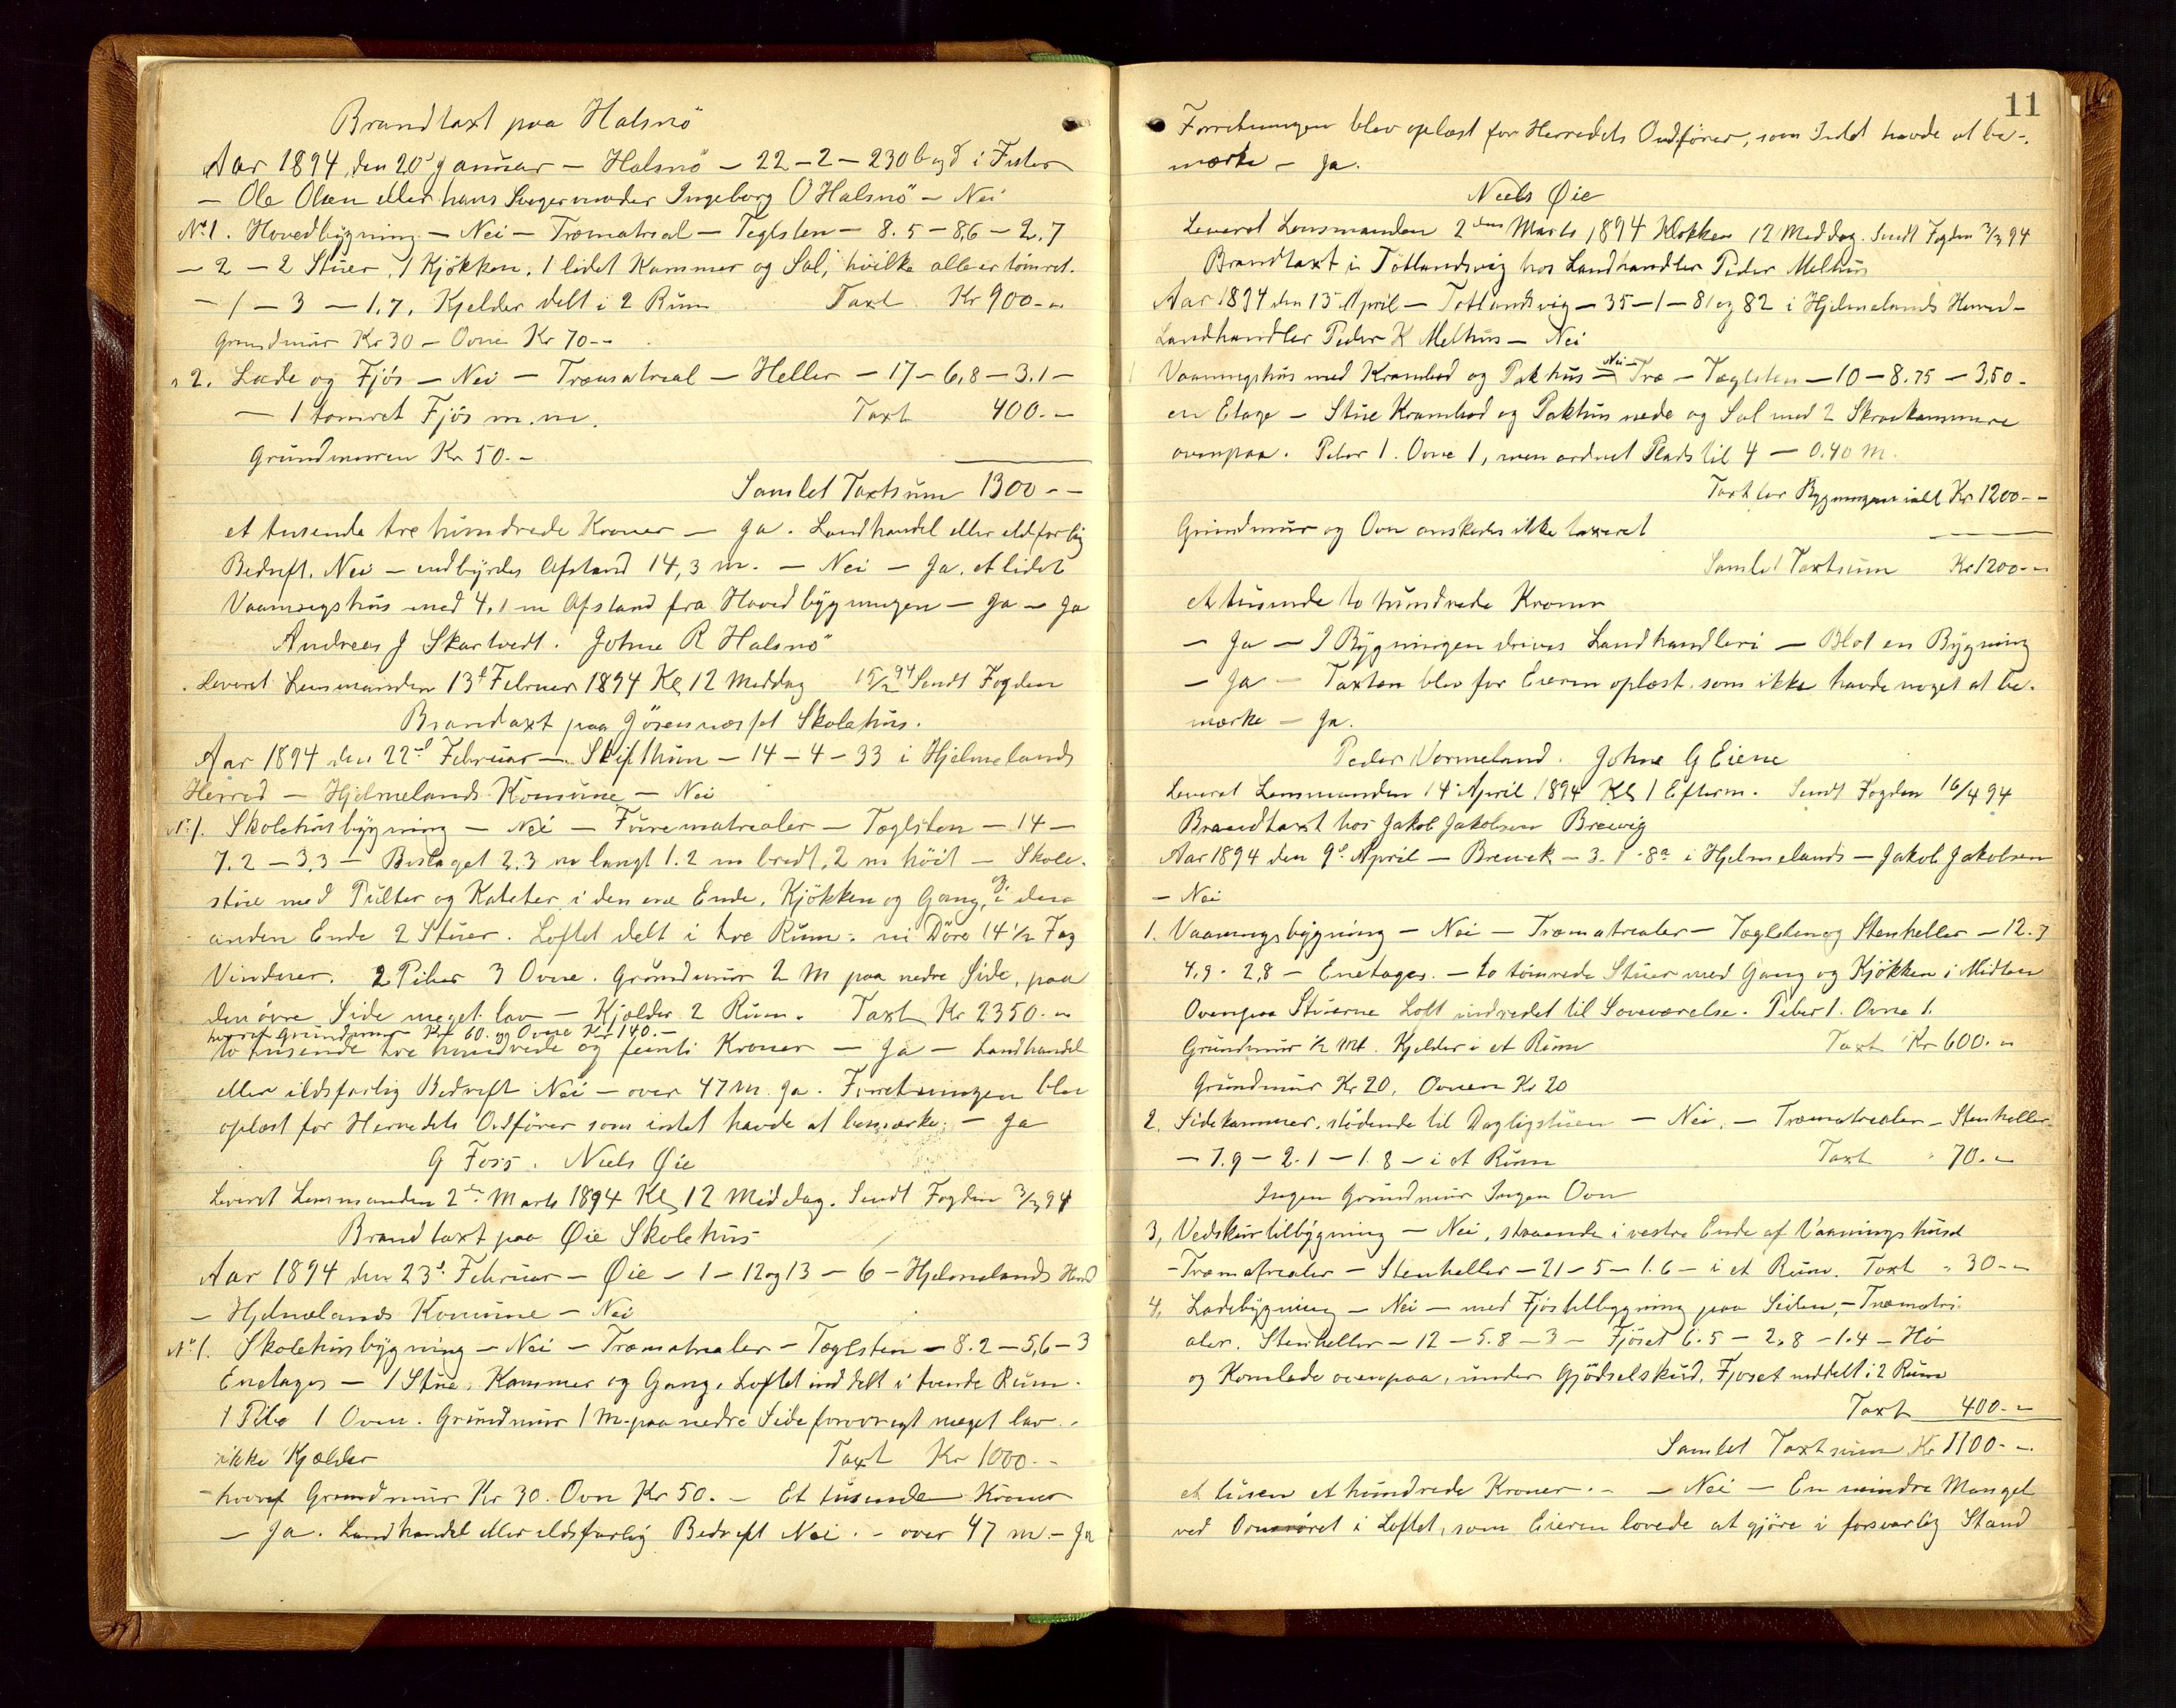 Brandtaxt paa Halsnö
Aar 1894 den 20d Januar – Halsnö – 22 – 2 – 230 b og d i Fister
– Ole Olsen eller hans Svigermoder Ingeborg O Halsnö – Nei
No 1. Hovedbygning – Nei – Træmatreal – Teglsten – 8.5 – 8,6 – 2.7
– 2 – 2 Stuer, 1 Kjökken, 1 lidet Kammer og Sal, hvilke alle er tömret.
– 1 – 3 – 1,7, Kjelder delt i 2 Rum Taxt Kr 900.-
Grundmur Kr 30 – Ovne Kr 70--
" 2. Lade og Fjös – Nei – Træmatreal – Heller – 17 – 6,8 – 3.1 –
– 1 tömret Fjös m.m. Taxt 400.-
Grundmuren Kr 50.-
Samlet Taxtsum 1300--
et tusende tre hundrede Kroner – Ja. Landhandel eller ildfarlig
Bedrift. Nei – indbyrdes Afstand 14,3 m. – Nei – Ja, et lidet
Vaaningshus med 4,1 m Afstand fra Hovedbygningen – Ja – Ja
Andreas J Skartvedt. Johne R Halsnö
Leveret Lensmanden 13d Februar 1894 Kl 12 Middag 15/2 94 Sendt Fogden
Brandtaxt paa Jösenneset Skolehus.
Aar 1894 den 22d Februar – Skiftun – 14 – 4 – 33 i Hjelmelands
Herred – Hjelmelands Komune – Nei
No 1. Skolehusbygning – Nei – Furematrealer – Teglsten – 14 –
7.2 – 3,3 – Bislaget 2.3 m langt 1.2 m bredt, 2 m höit – Skole-
stue med Pulter og Kateter i den ene Ende, Kjökken og Gang, og i den
anden Ende 2 Stuer. Loftet delt i tre Rum. ni Döre 14 1/2 Fag
Vinduer. 2 Piber 3 Ovne. Grundmur 2 M paa nedre Side, paa
den övre Side meget lav – Kjelder 2 Rum. Taxt Kr 2350.-
hvoraf Grundmur Kr 60. og Ovne Kr 140.-
to tusende tre hundrede og femti Kroner – Ja – Landhandel
eller ildsfarlig Bedrift Nei – over 47 m. Ja. Forretningen blev
oplæst for Herredets Ordförer som intet havde at bemærke. – Ja
G Foss. Niels Øie
Leveret Lensmanden 2den Marts 1894 Kl 12 Middag. Sendt Fogden 3/3 94
Brandtaxt paa Øie Skolehus
Aar 1894 den 23d Februar – Øie – 1 – 12 og 13 – 6 – Hjelmelands Herred
– Hjelmelands Komune – Nei
No 1. Skolehusbygning – Nei – Træmatrealer – Teglsten – 8.2 – 5,6 – 3
Enetages – 1 Stue, Kammer og Gang. Loftet inddelt i tvende Rum.
1 Pibe 1 Ovn. Grundmur 1 M paa nedre Side forövrigt meget lav.
ikke Kjælder Taxt Kr 1000.-
hvoraf Grundmur Kr 30. Ovn Kr 50. – Et tusende Kroner
– Ja. Landhandel eller ildsfarlig Bedrift Nei. – over 47 m. – Ja
11
Forretningen blev oplæst for Herredets Ordförer, som Intet havde at be-
mærke – Ja.
Niels Øie
Leveret Lensmanden 2den Marts 1894 Klokken 12 Middag. Sendt Fogden 3/3 94
Brandtaxt i Tötlandsvig hos Landhandler Peder Melhus
Aar 1894 den 13 April – Tötlandsvig – 35 – 1 – 81 og 82 i Hjelmelands Herred –
Landhandler Peder K Melhus – Nei
1 Vaaningshus med Krambod og Pakhus – Nei – Træ – Teglsten – 10 – 8.75 – 3,50 –
en Etage – Stue Krambod og Pakhus nede og Sal med 2 Skraakammere
ovenpaa. Piber 1. Ovne 1, men ordnet Plads til 4 – 0.40 M.
Taxt for Bygningen ialt Kr 1200--
Grundmur og Ovn önskedes ikke taxeret
Samlet Taxtsum Kr 1200--
et tusende to hundrede Kroner
– Ja – I Bygningen drives Landhandleri – Blot en Bygning
– Ja – Taxten blev for Eieren oplæst, som ikke havde noget at be-
mærke – Ja.
Peder Vormeland. Johne G Eiene
Leveret Lensmanden 14 April 1894 Kl 1 Efterm. Sendt Fogden 16/4 94
Brandtaxt hos Jakob Jakobsen Brevig
Aar 1894 den 9d April – Brevek – 3. 1 – 8a i Hjelmelands – Jakob Jakobsen
– Nei
1. Vaaningsbygning – Nei – Træmatrealer – Teglsten og Stenheller – 12.7
4,9 – 2,8 – Enetages. – to tömrede Stuer med Gang og Kjökken i Midten
Ovenpaa Stuerne Loft indredet til Soveværelse. Piber 1. Ovne 1.
Grundmur 1/2 Mt. Kjelder i et Rum Taxt Kr 600.-
Grundmur Kr 20, Ovnen Kr 20
2. Sidekammer, stödende til Dagligstuen – Nei. – Træmatrealer – Stenheller
– 7.9 – 2.1 – 1.8 – i et Rum Taxt " 70.-
Ingen Grundmur Ingen Ovn
3, Vedskurtilbygning – Nei, staaende i vestre Ende af Vaaningshuset
– Træmatrealer – Stenheller – 21 – 5 – 1.6 – i et Rum. Taxt " 30--
4, Ladebygning – Nei – med Fjöstilbygning paa Siden, – Træmatri-
aler. Stenheller – 12 – 5.8 – 3 – Fjöset 6.5 – 2,8 – 1.4 – Hö
og Kornlade ovenpaa, under Gjödselskud, Fjöset inddelt i 2 Rum
Taxt 400.-
Samlet Taxtsum Kr 1100.-
et tusen et hundrede Kroner. – – Nei – En mindre Mangel
ved Ovnsröret i Loftet, som Eieren lovede at gjöre i forsvarlig Stand